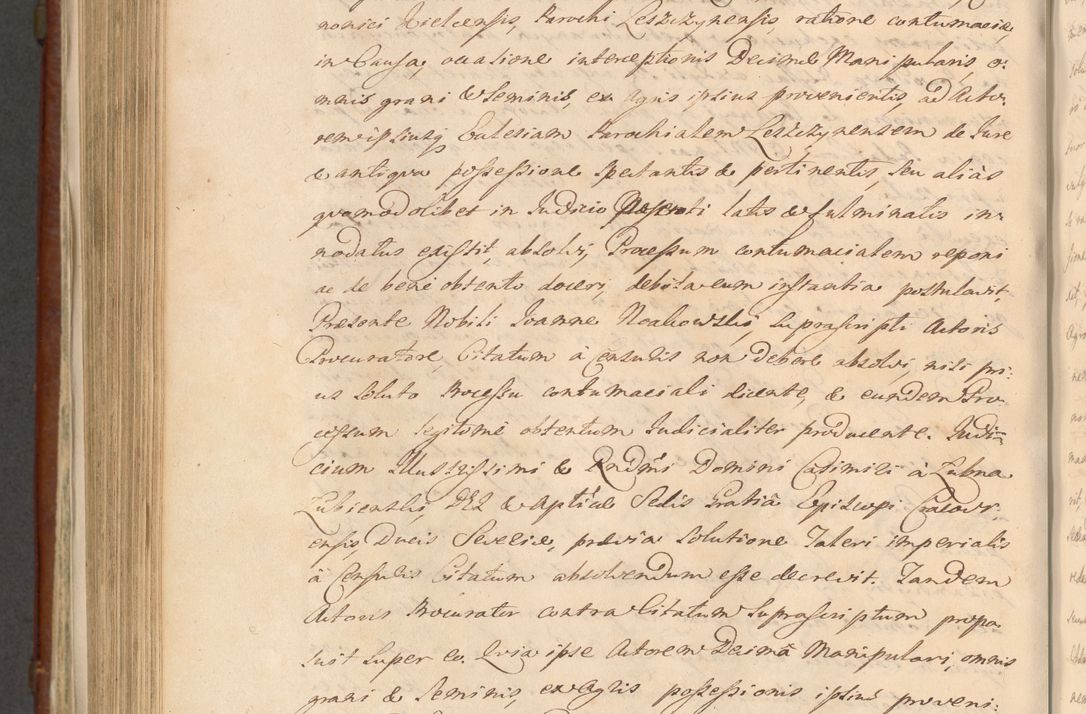 nonici Kielcensis, Parochi Leszczynensis, ratione contumaciæ,
in Causa, occasione interceptionis Decimæ Manipularis, o:
mnis grani & seminis, ex Agris ipsius provenientis, ad Acto:
rem ipsiusq Ecclesiam Parochialem Leszczynensem de Jure
& antiqva possessione spectantis & pertinentis, seu aliàs
qvomodolibet in Judicio Præsenti latis & fulminatis in:
nodatus existit, absolvi, Processum contumacialem reponi
ac de bene obtento doceri, debita cum instantia postulavit,
Præsente Nobili Joanne Noakowski, suprascripti Actoris
Procuratore, Citatum à censuris non debere absolvi, nisi pri:
us soluto Processu contumaciali dicente, & eundem Pro:
cessum legitimè obtentum Judicialiter producente. Judi:
cium Illustrissimi & Rndmi Domini Casimiri à Łubna
Łubienski, DEI & Aplicæ Sedis Gratiâ Episcopi Cracovi:
ensis, Ducis Severiæ, prævia solutione Taleri imperialis
à Censuris Citatum absolvendum esse decrevit. Tandem
Actoris Procurator contra Citatum suprascriptum propo:
suit super eo. Qvia ipse Actorem Decimâ Manipulari, omnis
grani & seminis, ex Agris possessionis ipsius proveni: